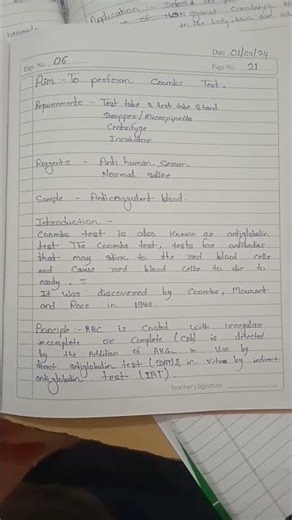 Application :- Detects
in the body
Expt. No. 06
Date 01/03/24
Page No. 21
Aim :- To perform Coombs Test.
Requirements :- Test tube & test tube stand
Dropper / Micropipette
Centrifuge
Incubator
Reagents :- Anti human Serum
Normal Saline
Sample :- Anticoagulant blood.
Introduction :-
Coombs test is also known as antiglobulin
test. The Coombs test, tests for antibodies
that may stick to the red blood cells
and cause red blood cells to die to
early. :-
It was discovered by Coombs, Mourant
and Race in 1945
Principle :- RBC is Coated with
incomplete or Complete (Cab) is detected
by the Addition of AHG. in Vivo by
direct antiglobulin test (DAT) & in vitro by indirect
antiglobulin test (IAT).
Teacher's Signature